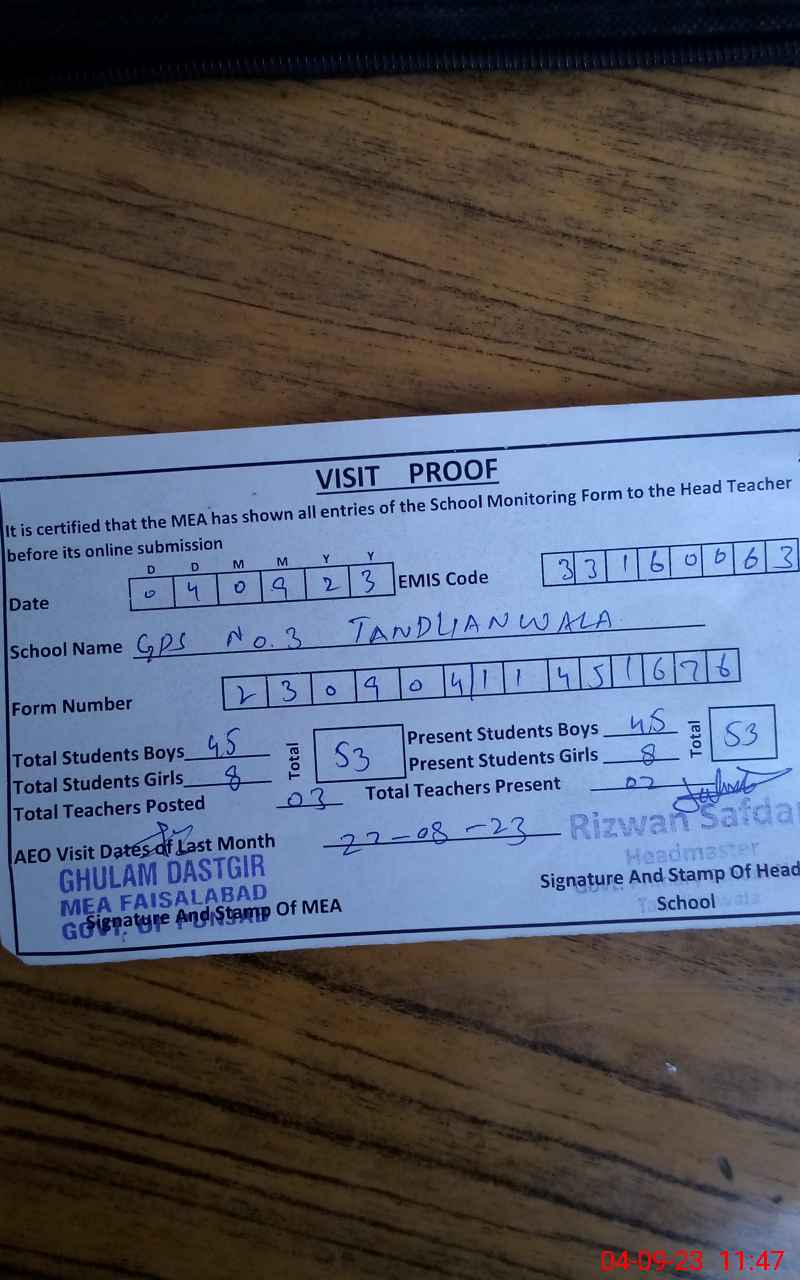 VISIT PROOF
It is certified that the MEA has shown all entries of the School Monitoring Form to the Head Teacher
before its online submission
D D M M Y Y
Date 0 4 0 9 2 3 EMIS Code 3 3 1 6 0 0 6 3
School Name GPS No. 3 TANDLIANWALA
Form Number 2 3 0 9 0 4 1 1 4 5 1 6 7 6
Total Students Boys 45 Total 53 Present Students Boys 45 Total 53
Total Students Girls 8 Present Students Girls 8
Total Teachers Posted 03 Total Teachers Present 02
AEO Visit Dates of Last Month 22-08-23 Rizwan Safdar
GHULAM DASTGIR Headmaster
MEA FAISALABAD Signature And Stamp Of Head
Signature And Stamp Of MEA School
GOVT. OF PUNJAB
04-09-23 11:47